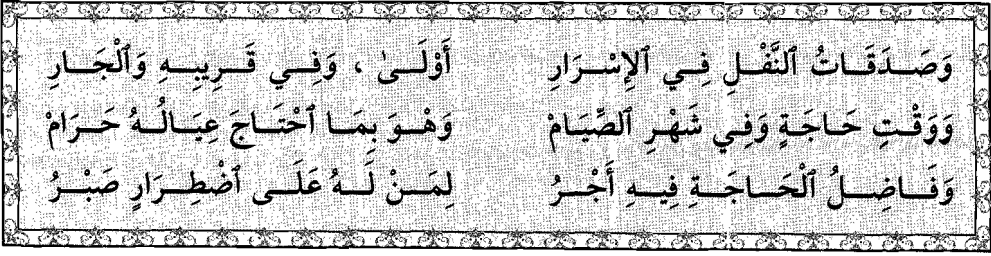 وَصَدَقَاتُ ٱلنَّفْلِ فِي ٱلإِسْرَارِ أَوْلَىٰ ، وَفِي قَرِيبِهِ وَٱلْجَارِ
وَوَقْتِ حَاجَةٍ وَفِي شَهْرِ ٱلصِّيَامْ وَهْوَ بِمَا ٱحْتَاجَ عِيَالُهُ حَرَامْ
وَفَاضِلُ ٱلْحَاجَةِ فِيهِ أَجْرُ لِمَنْ لَهُ عَلَى ٱضْطِرَارٍ صَبْرُ